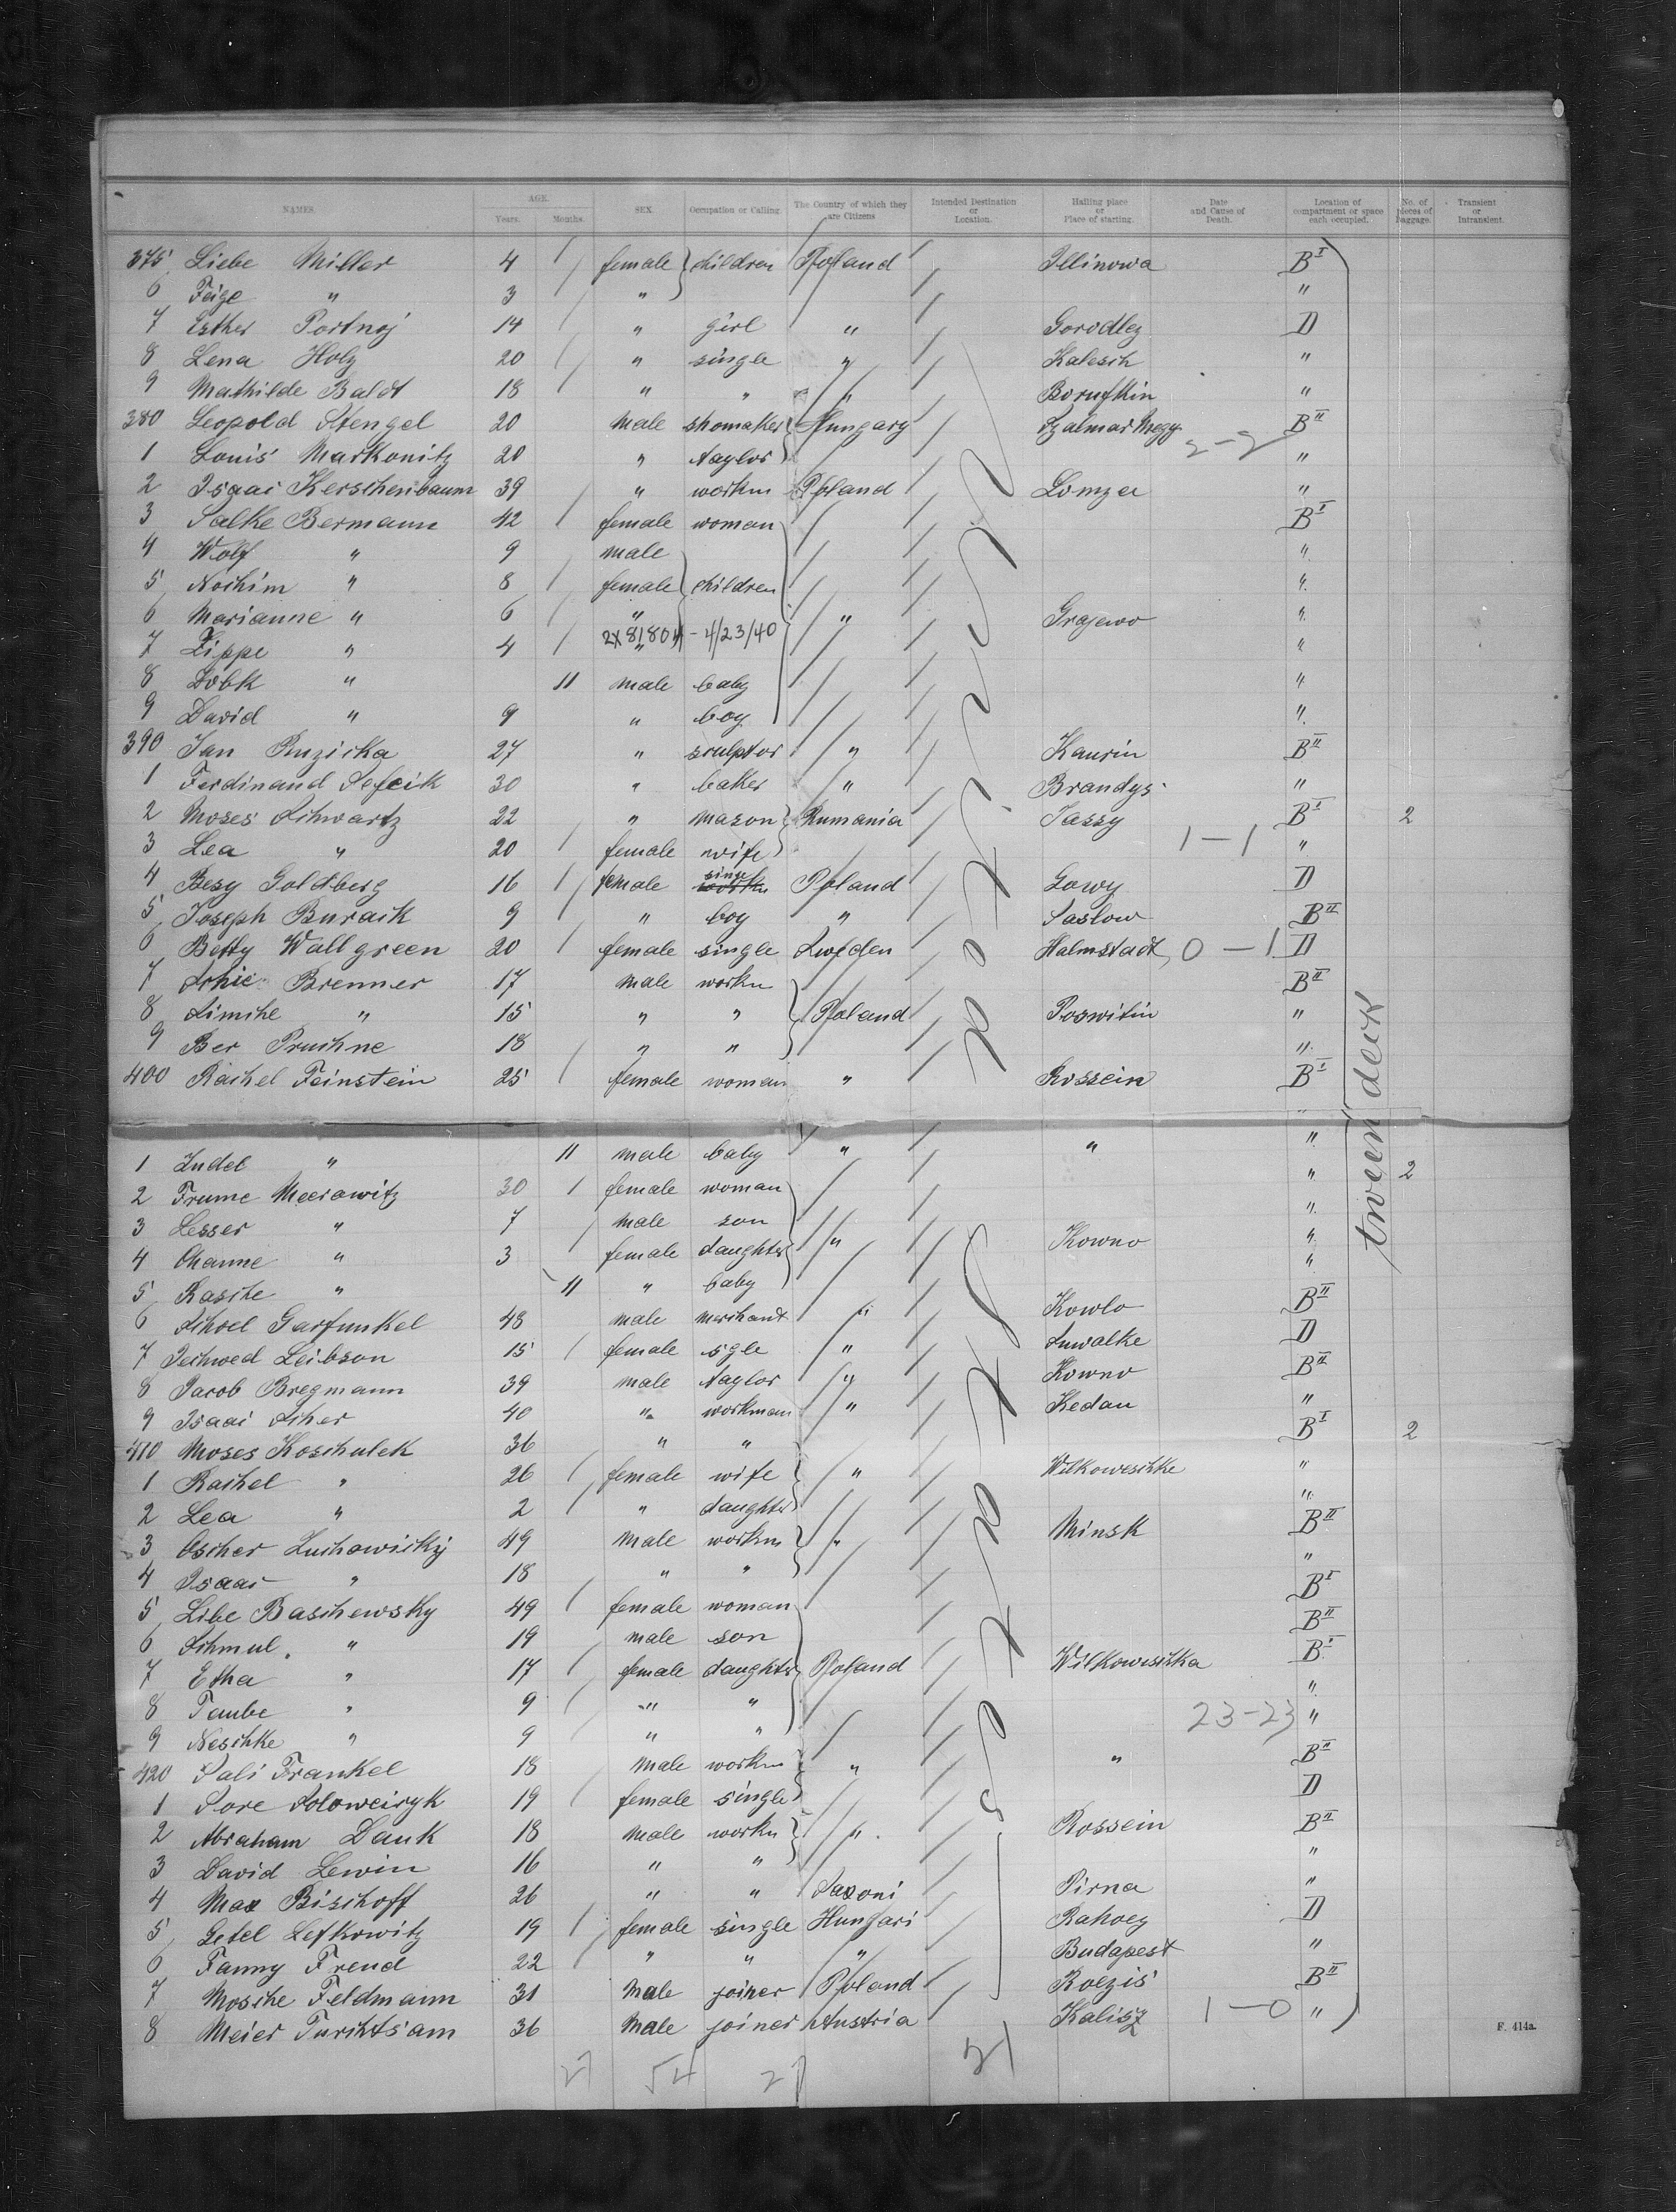 NAMES. AGE. Years. Months. SEX. Occupation or Calling. The Country of which they are Citizens Intended Destination or Location. Hailing place or Place of starting. Date and Cause of Death. Location of compartment or space each occupied. No. of pieces of baggage. Transient or Intransient.
375 Liebe Miller 4 female children Poland Illinowa B I
6 Feige " 3 " "
7 Esther Portnoj 14 " girl " Gorodley D
8 Lena Holz 20 " single " Kalesch "
9 Mathilde Baldt 18 " " " Borufkin "
380 Leopold Stengel 20 male shomaker Hungary Szalmar Megy B II
2-2
1 Louis Markonitz 20 " taylor "
2 Isaac Kerschenbaum 39 " workm Poland Lomza "
3 Salke Bermann 42 female woman B I
4 Wolf " 9 male "
5 Nochim " 8 female children "
6 Marianne " 6 " " Grajewo "
2x81804 - 4/23/40
7 Lippe " 4 " "
8 Lobk " 11 male baby "
9 David " 9 " boy "
390 Jan Ruzicka 27 " sculptor " Kaurin B II
1 Ferdinand Sefcik 30 " baker " Brandys "
2 Moses Schwartz 22 " mason Rumania Jassy B I 2
1-1
3 Lea " 20 female wife "
4 Besy Goldberg 16 female single Poland Gowy D
5 Joseph Buraik 9 " boy " Saslow B II
6 Betty Wallgreen 20 female single Sweden Halmstadt 0-1 D
7 Schie Brenner 17 male workm B II
8 Simche " 15 " " Poland Poswitin "
9 Ber Pruchne 18 " " "
400 Rachel Feinstein 25 female woman " Rossein B I
"
1 Judel " 11 male baby " " "
2 Frume Meerowitz 30 female woman " 2
3 Lesser " 7 male son "
4 Channe " 3 female daughter " Kowno "
5 Rasche " 11 " baby "
6 Schoel Garfunkel 48 male merchant " Kowlo B II
7 Jechwed Leibson 15 female sgle " Suwalke D
8 Jacob Bregmann 39 male taylor " Kowno B II
9 Isaac Scher 40 " workman " Kedan "
410 Moses Koschulek 36 " " B I 2
1 Rachel " 26 female wife " Wilkoweschke "
2 Lea " 2 " daughter "
3 Oscher Zuchowicky 49 male workm " Minsk B II
4 Isaac " 18 " " "
5 Libe Baschewsky 49 female woman B I
6 Schmul " 19 male son B II
7 Etha " 17 female daughter Poland Wilkowischka B I
8 Taube " 9 " " "
23-23
9 Neschke " 9 " " "
420 Sali Frankel 18 male workm " " B II
1 Sore Soloweiczyk 19 female single D
2 Abraham Dauk 18 male workm " Rossein B II
3 David Lewin 16 " " "
4 Max Bischoff 26 " " Saxoni Pirna "
5 Getel Lefkowitz 19 female single Hungari Rahoey D
6 Fanny Freud 22 " " " Budapest "
7 Mosche Feldmann 31 male joiner Poland Roezis B II
8 Meier Turchtsam 36 male joiner Austria Kalisz 1-0 "
tween deck
F. 414a.
27 54 27